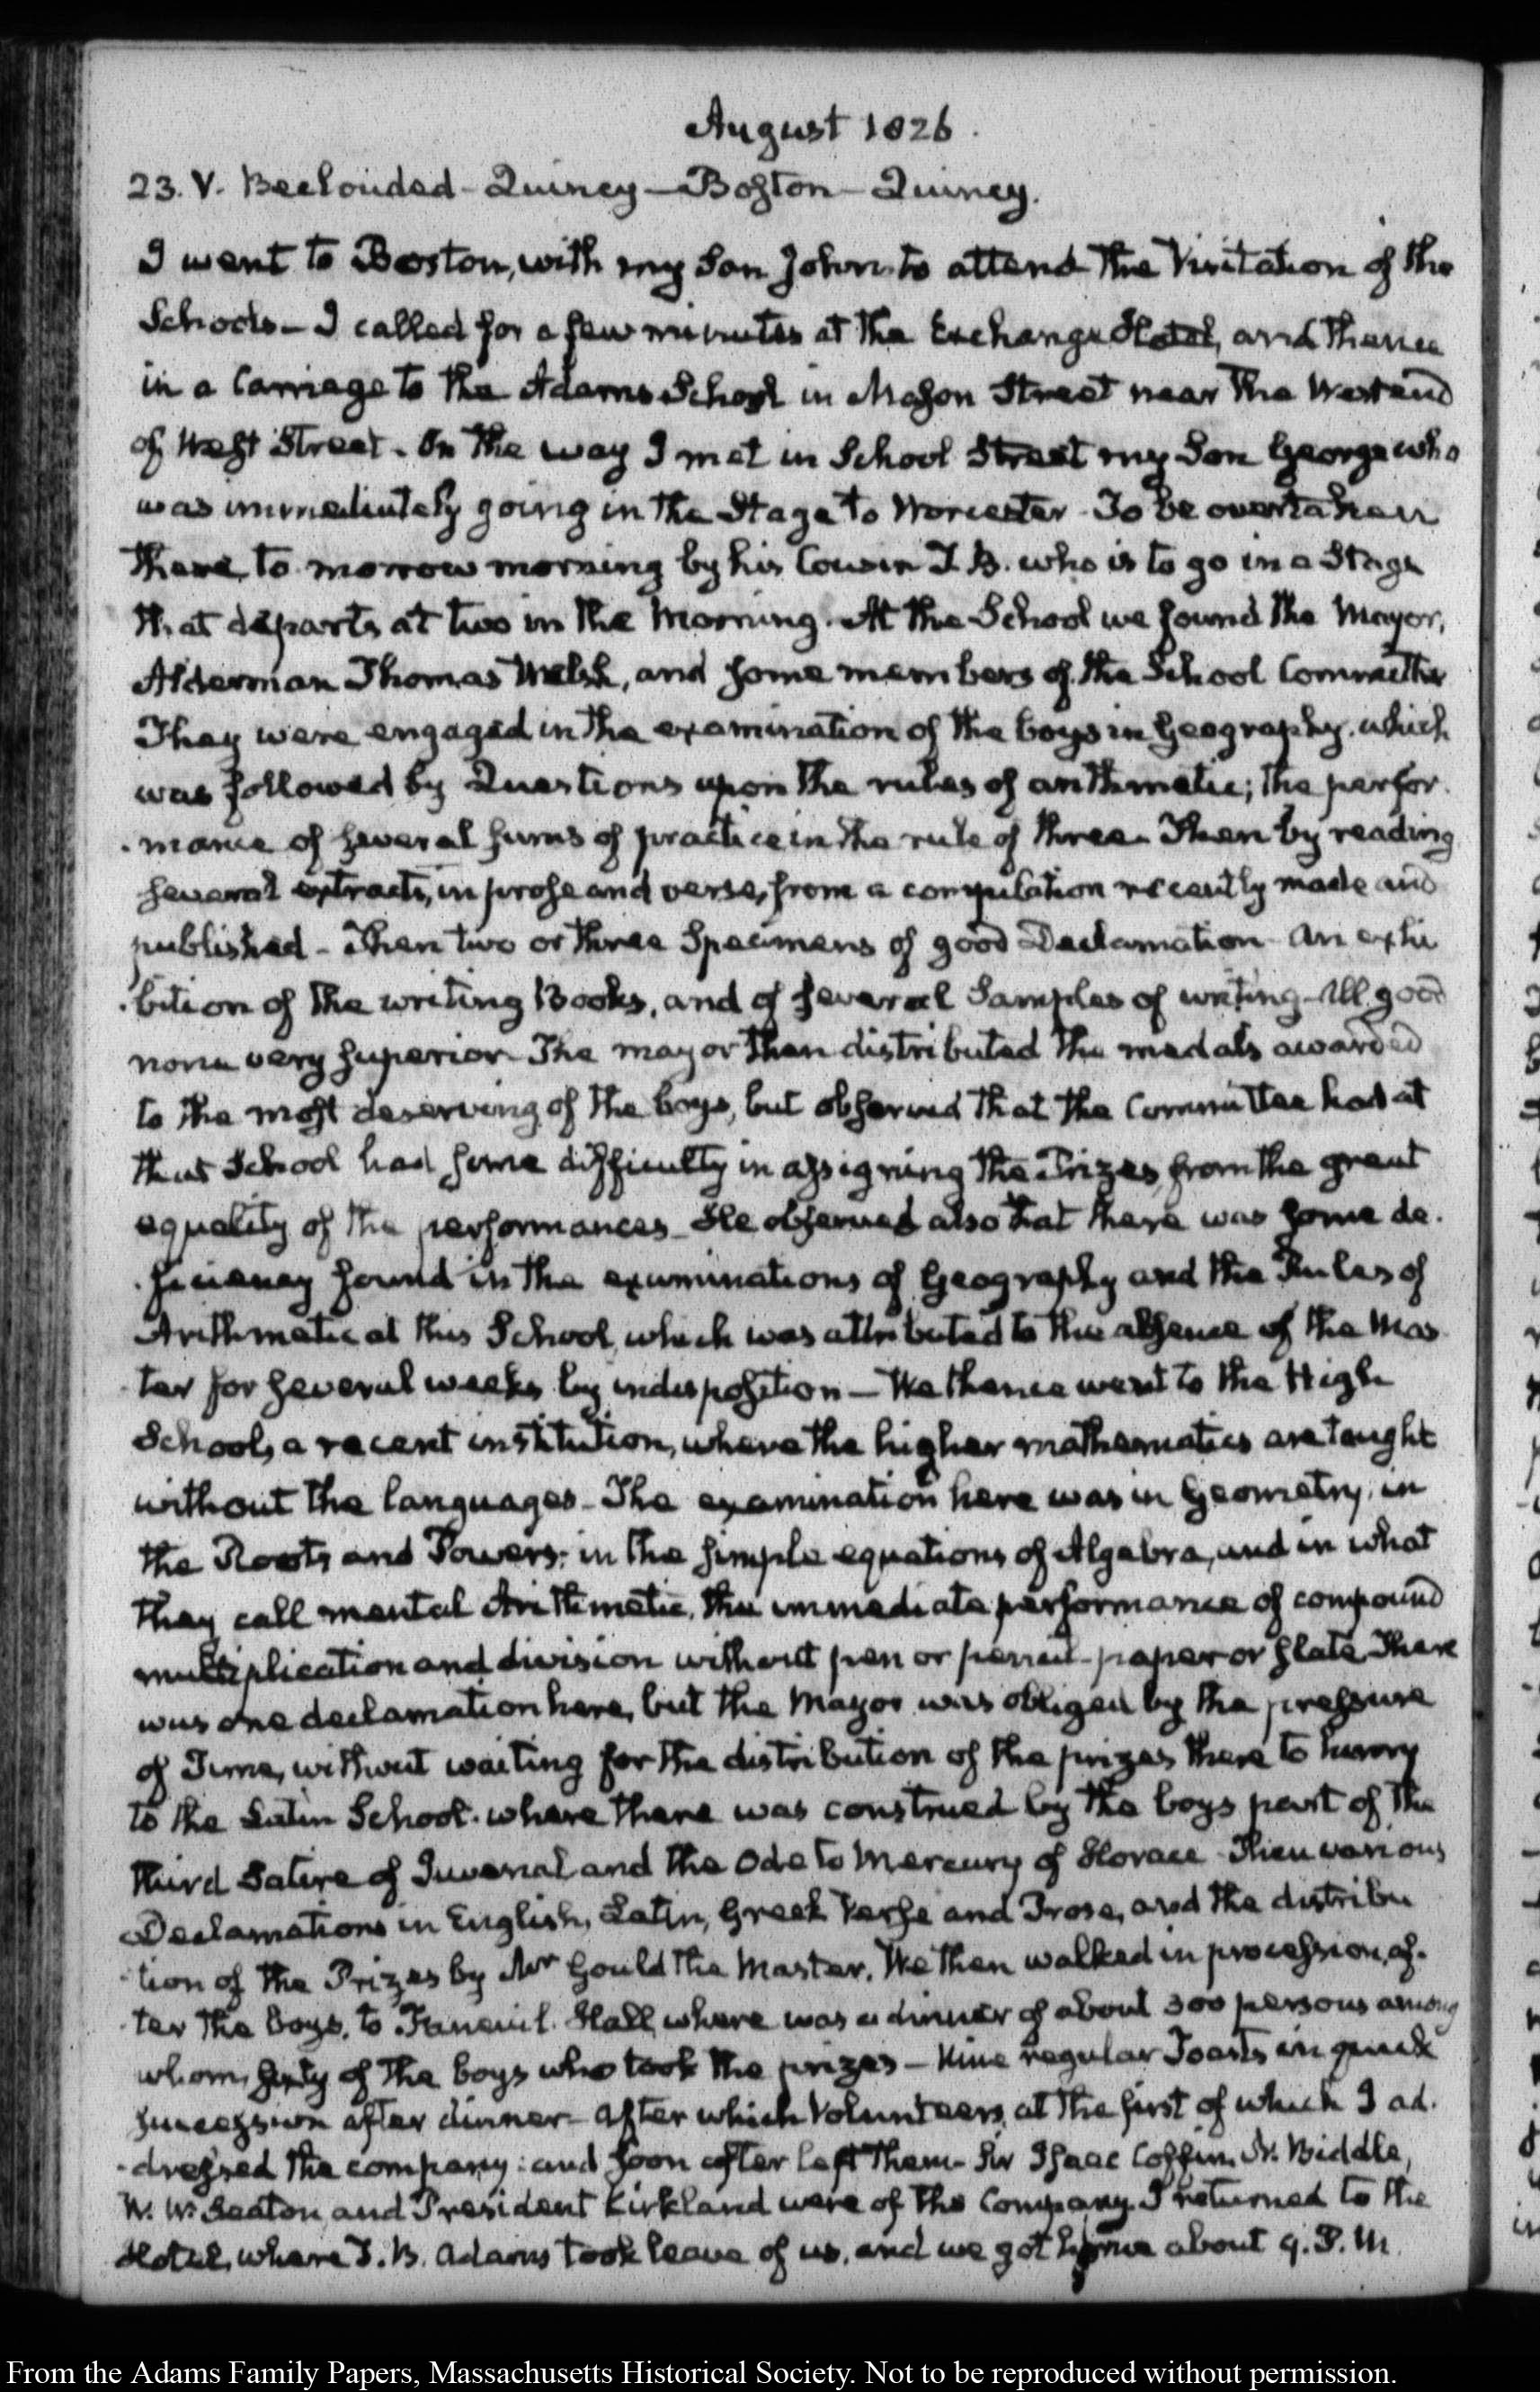 August 1826.
23. V. Beclouded - Quincy — Boston — Quincy.
I went to Boston, with my Son John to attend the Visitation of the
Schools — I called for a few minutes at the Exchange Hotel, and thence
in a Carriage to the Adams School in Mason Street near the West end
of West Street. On the way I met in School Street my Son George who
was immediately going in the Stage to Worcester - To be overtaken
there, to morrow morning by his Cousin T. B. who is to go in a Stage
that departs at two in the Morning. At the School we found the Mayor,
Alderman Thomas Welsh, and some members of the School Committee
They were engaged in the examination of the boys in Geography, which
was followed by Questions upon the rules of arithmetic; the perfor-
-mance of several sums of practice in the rule of three - Then by reading
several extracts, in prose and verse, from a compilation recently made and
published - Then two or three Specimens of good Declamation - An exhi
-bition of the writing Books, and of several Samples of writing - All good
none very superior - The mayor then distributed the medals awarded
to the most deserving of the boys, but observed that the Committee had at
this School had some difficulty in assigning the Prizes, from the great
equality of the performances - He observed also that there was some de-
-ficiency found in the examinations of Geography and the Rules of
Arithmetic at this School, which was attributed to the absence of the Mas
-ter for several weeks by indisposition — We thence went to the High
School, a recent institution, where the higher mathematics are taught
without the languages - The examination here was in Geometry, in
the Roots and Powers; in the simple equations of Algebra, and in what
they call mental Arithmetic, the immediate performance of compound
multiplication and division without pen or pencil - paper or slate. There
was one declamation here, but the Mayor was obliged by the pressure
of Time, without waiting for the distribution of the prizes there to hurry
to the Latin School. where there was construed by the boys part of the
third Satire of Juvenal and the Ode to Mercury of Horace - Then various
Declamations in English, Latin, Greek Verse and Prose, and the distribu
-tion of the Prizes by Mr Gould the Master. We then walked in procession, af-
-ter the boys, to Faneuil Hall, where was a dinner of about 300 persons among
whom, sixty of the boys who took the prizes — Nine regular Toasts in quick
succession after dinner - after which Volunteers, at the first of which I ad-
-dressed the company: and soon after left them - Sir Isaac Coffin, N. Biddle,
W. W. Seaton, and President Kirkland were of the Company. I returned to the
Hotel, where T. B. Adams took leave of us, and we got home about 9. P. M.
From the Adams Family Papers, Massachusetts Historical Society. Not to be reproduced without permission.